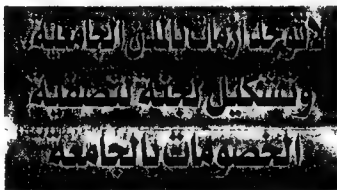 لاتوجد أزمات بالمدن الجامعية
وتشكيل لجنة لتصفية
الخصومات بالجامعة